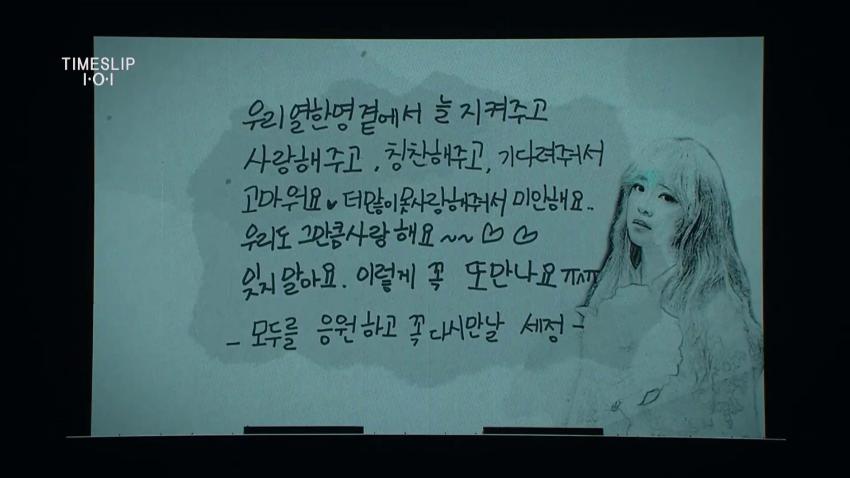 TIMESLIP
I·O·I
우리 열한명 곁에서 늘 지켜주고
사랑해주고, 칭찬해주고, 기다려줘서
고마워요♥ 더많이못사랑해줘서 미안해요..
우리도 그만큼사랑 해요~~♡♡
잊지 말아요. 이렇게 꼭 또만나요ㅠㅅㅠ
- 모두를 응원하고 꼭 다시만날 세정 -